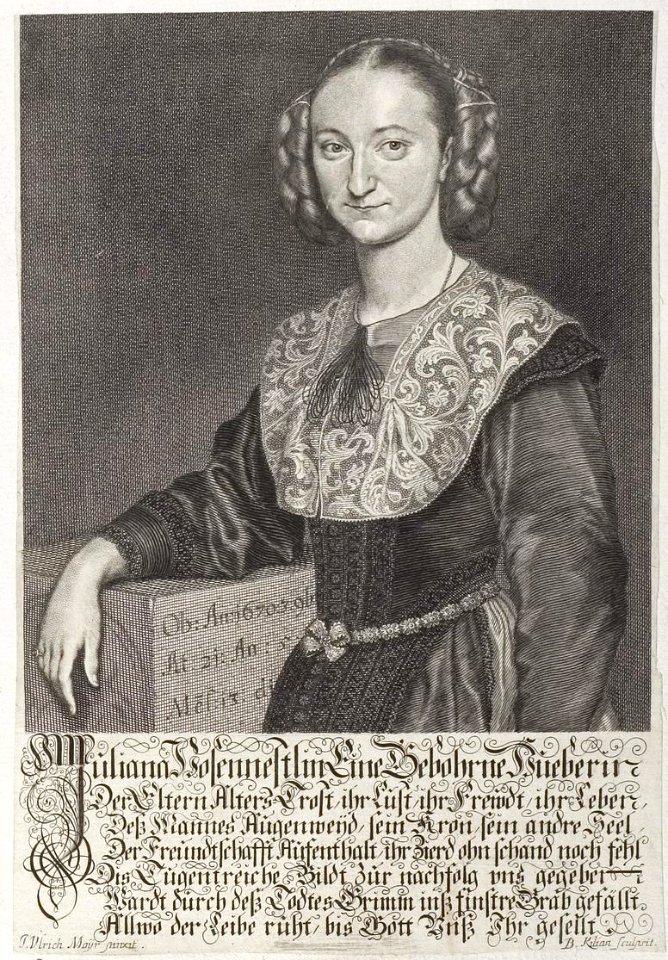 Ob: An: 1670. 9b
Æt 21: An:
Mēs: ix di
Juliana Rosennestlin Eine Gebohrne Hüeberin
Der Eltern Alters Trost ihr Lust ihr Frewdt, ihr Leben,
Deß Mannes Augenweÿd, sein Kron sein andre Seel,
Der Freündtschafft Aufenthalt, ihr Zierd ohn schand noch fehl
Dis Tugentreiche Bildt zur nachfolg vns gegeben
Wardt durch deß Todtes Grimm inß finstre Grab gefällt.
Allwo der Leibe ruht, bis Gott Vnß Ihr gesellt.
J. Vlrich Mayr pinxit. B. Kilian sculpsit.